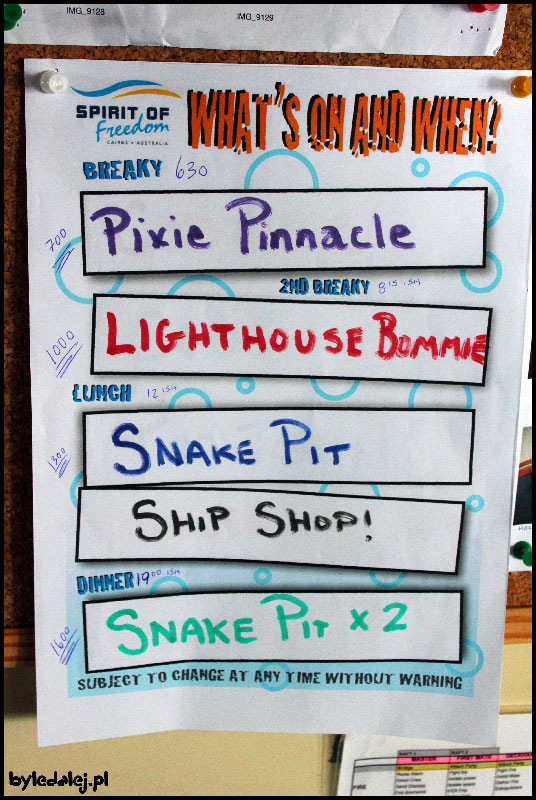 IMG_9128
IMG_9129
SPIRIT OF
Freedom
CAIRNS • AUSTRALIA
WHAT'S ON AND WHEN?
BREAKY 630
700
Pixie Pinnacle
2ND BREAKY 8 15 ISH
1000
LIGHTHOUSE BOMMIE
LUNCH 12 ISH
1300
SNAKE PIT
SHIP SHOP!
DINNER 1900 ISH
1600
SNAKE PIT x 2
SUBJECT TO CHANGE AT ANY TIME WITHOUT WARNING
byledalej.pl
RAFT 1
RAFT 2
MASTER
FIRST MATE
FIRE